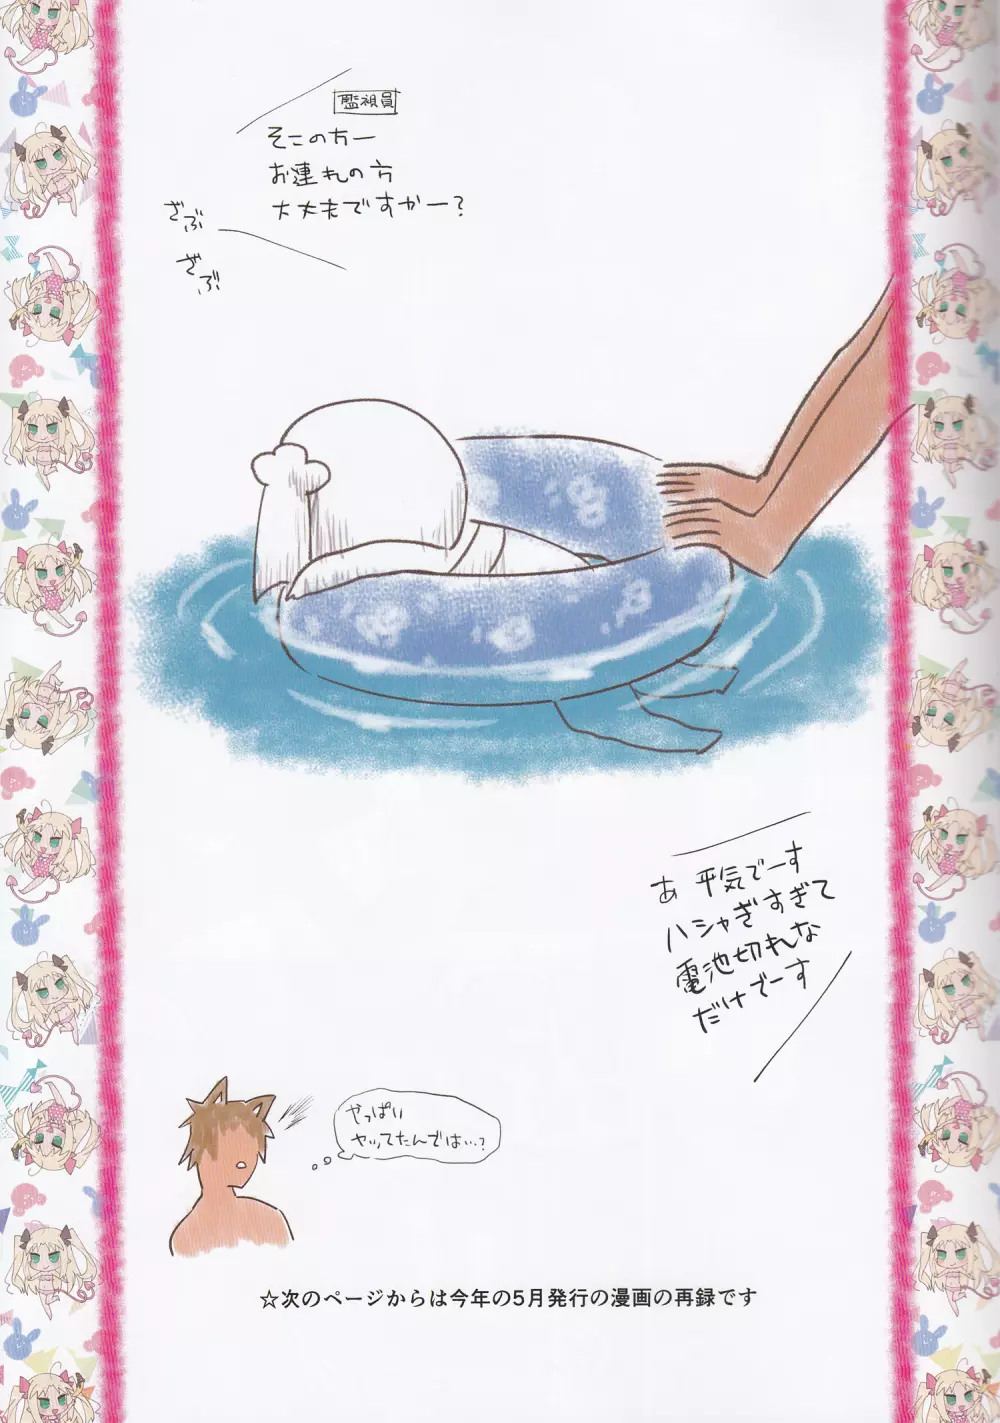 監視員
そこの方ー
お連れの方
大丈夫ですかー?
ざぶ
ざぶ
あ 平気でーす
ハシャぎすぎて
電池切れな
だけでーす
やっぱい
ヤッてたんでは…?
☆次のページからは今年の5月発行の漫画の再録です